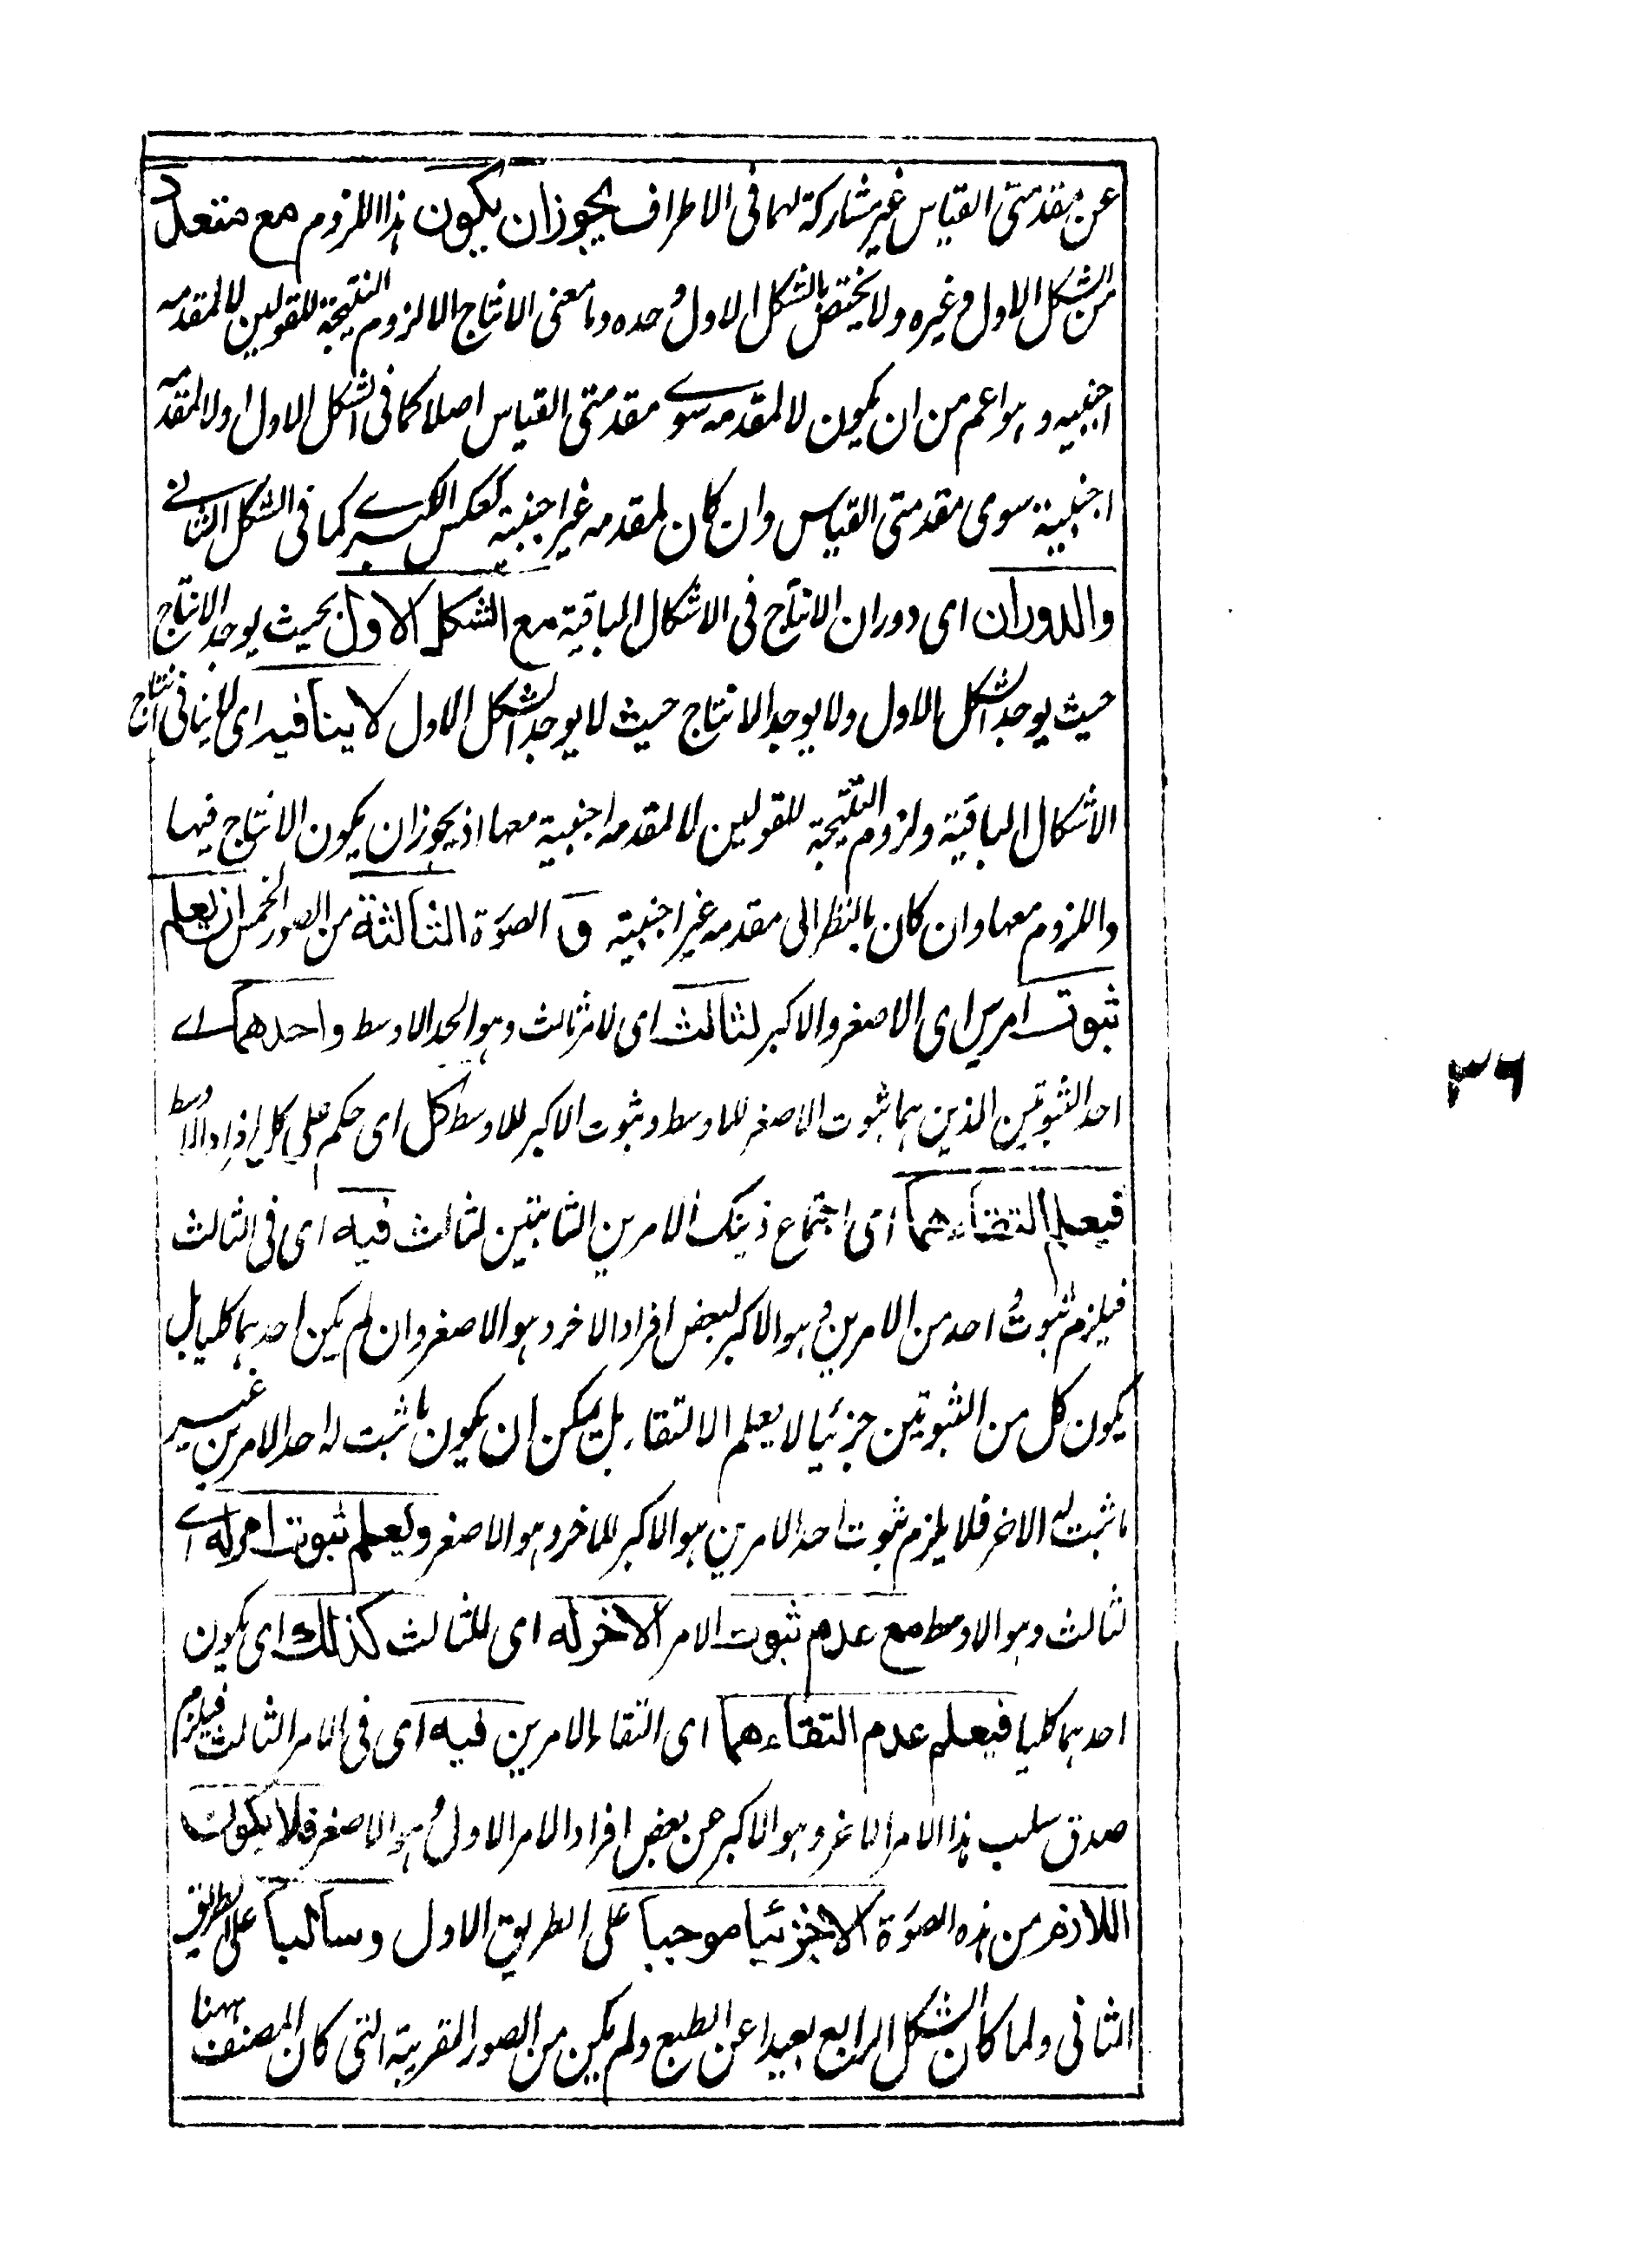 عن مقدمتى القياس غير مشاركة لهما فى الاطراف يجوز ان يكون هذا اللزوم مع متعدد
من الشكل الاول وغيره ولا يختص بالشكل الاول وحده وما معنى الانتاج الا لزوم النتيجة للقولين لا لمقدمه
اجنبيه وهو اعم من ان يكون لا لمقدمه سوے مقدمتى القياس اصلا كما فى الشكل الاول او لا لمقدمه
اجنبية سوى مقدمتى القياس وان كان لمقدمه غير اجنبية كعكس الكبرے كما فى الشكل الثانے
والدوران اى دوران الانتاج فى الاشكال الباقية مع الشكل الاول بحيث يوجد الانتاج
حيث يوجد الشكل الاول ولا يوجد الانتاج حيث لا يوجد الشكل الاول لا ينافيه اى لا ينافى انتاج
الاشكال الباقية ولزوم النتيجة للقولين لا لمقدمه اجنبية معها اذ يجوز ان يكون الانتاج فيها
واللزوم معها وان كان بالنظر الى مقدمه غير اجنبية و الصورة الثالثة من الصور الخمس ان يعلم
ثبوت امرين اى الاصغر والاكبر لثالث اى لامر ثالث وهو الحد الاوسط واحدهما اے
احد الثبوتين الذين هما ثبوت الاصغر للاوسط وثبوت الاكبر للاوسط كل اى حكم على كل افراد الاوسط
فيعلم التقاءهما اى اجتماع ذينك الامرين الثابتين لثالث فيه اى فى الثالث
فيلزم ثبوت احد من الامرين وهو الاكبر لبعض افراد الاخر وهو الاصغر وان لم يكن احدهما كليا بل
يكون كل من الثبوتين جزئيا لا يعلم الالتقاء بل يمكن ان يكون ما ثبت له احد الامرين غير
ما ثبت له الاخر فلا يلزم ثبوت احد الامرين هو الاكبر للاخر وهو الاصغر ويعلم ثبوت امر له اے
لثالث وهو الاوسط مع عدم ثبوت الامر الاخر له اى للثالث كذلك اى يكون
احدهما كليا فيعلم عدم التقاءهما اى التقاء الامرين فيه اى فى الامر الثالث فيلزم
صدق سلب هذا الامر الاخر وهو الاكبر عن بعض افراد الامر الاول وهو الاصغر فلا يكون
اللازم من هذه الصورة الا جزئيا موجبا على الطريق الاول وسالبا على الطريق
الثانى ولما كان الشكل الرابع بعيدا عن الطبع ولم يكن من الصور القريبة التى كان المصنف ههنا
٣٦